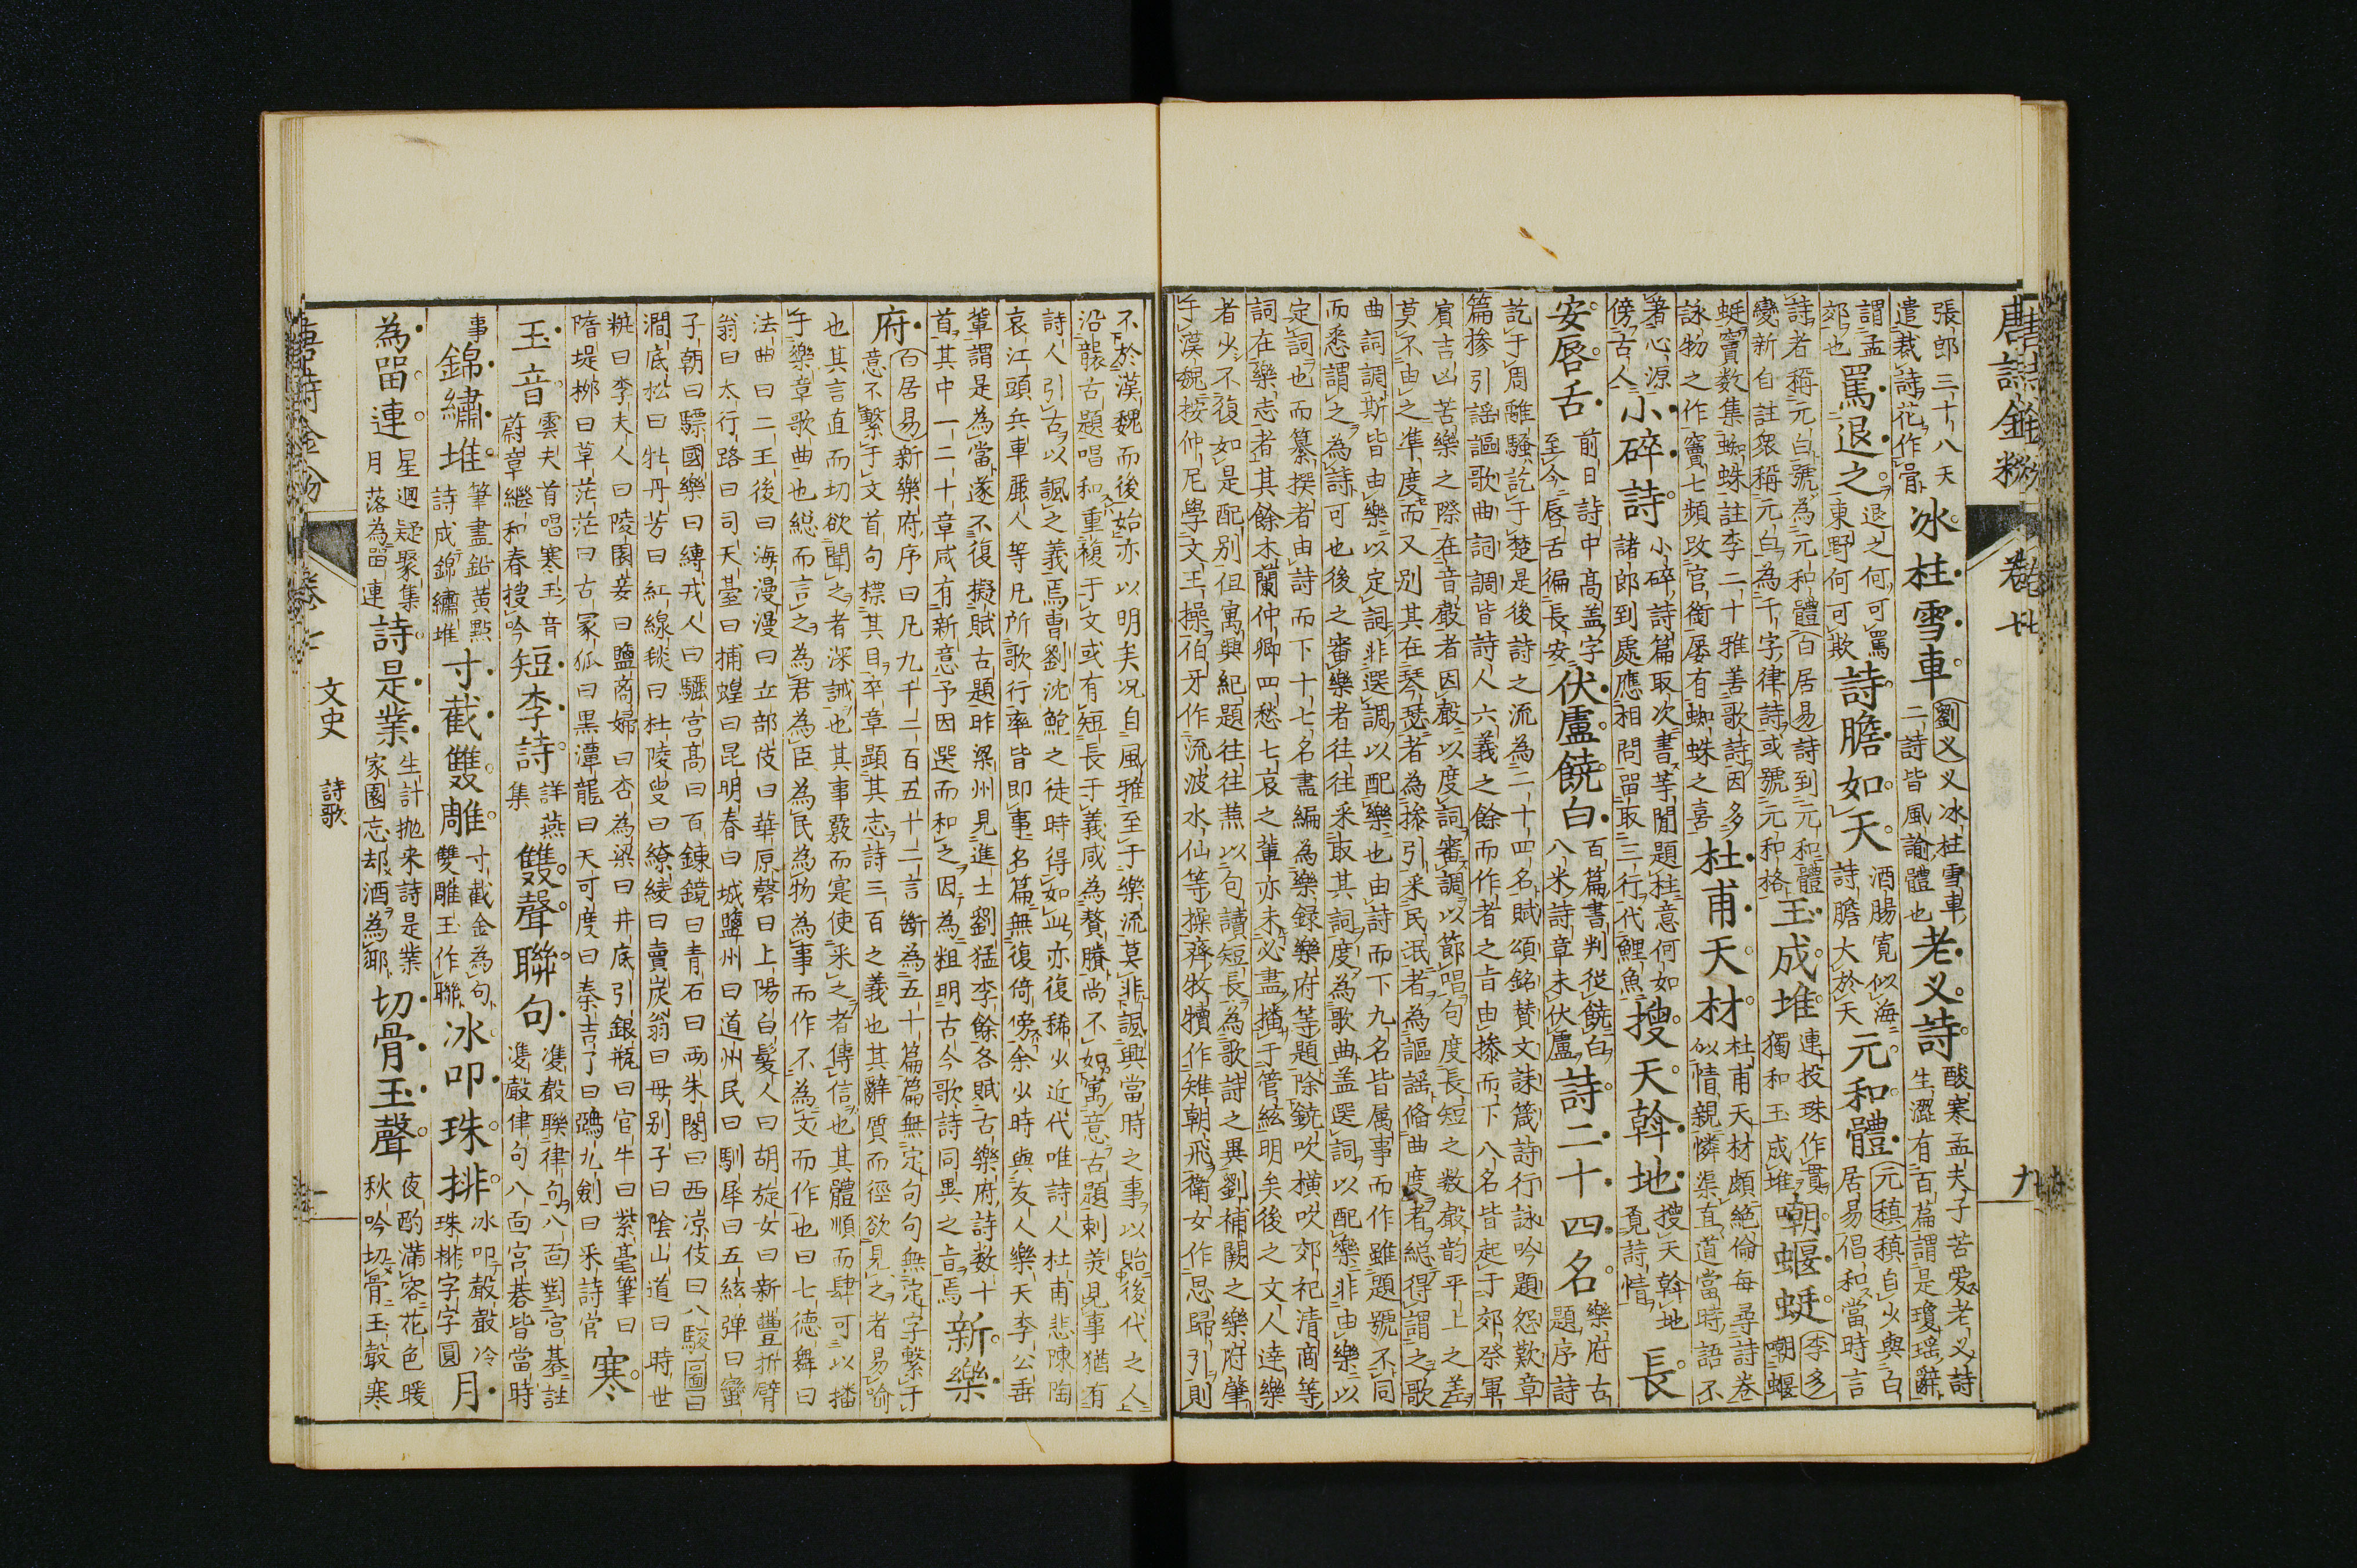 唐詩金粉 卷七 九
張郎三十八天
遣裁詩花作骨
冰柱雪車
劉义 义冰柱雪車
二詩皆風諭體也
老义詩
酸寒孟夫子苦愛老义詩
生澀有百篇謂是瓊瑶辭
謂孟
郊也
罵退之
退之何可罵
東野何可欺
詩膽如天
酒腸寛似海
詩膽大於天
元和體
元稹 稹自少與白
居易倡和當時言
詩者稱元白號為元和體 白居易 詩到元和體
變新自註衆稱元白為千字律詩或號元和格
玉成堆
連投珠作貫
獨和玉成堆
嘲蝘蜓
李多
嘲蝘
蜓竇数集蜘蛛註李二十雅善歌詩因多
詠物之作竇七頻改官銜屡有蜘蛛之喜
杜甫天材
杜甫天材頗絶倫每尋詩卷
似情親憐渠直道當時語不
著心源
傍古人
小碎詩
小碎詩篇取次書等閒題柱意何如
諸郎到處應相問畱取三行代鯉魚
搜天斡地
搜天斡地
覓詩情
長
安唇舌
前日詩中高盖字
至今唇舌徧長安
伏盧饒白
百篇書判從饒白
八米詩章未伏盧
詩二十四名
樂府古
題序詩
訖于周離騷訖于楚是後詩之流為二十四名賦頌銘賛文誄箴詩行詠吟題怨歎章
篇操引謡謳歌曲詞調皆詩人六義之餘而作者之旨由操而下八名皆起于郊祭軍
賓吉凶苦樂之際在音聲者因聲以度詞審調以節唱句度長短之数聲韵平上之差
莫不由之準度而又别其在琴瑟者為操引采民氓者為謳謡備曲度者総得謂之歌
曲詞調斯皆由樂以定詞非選調以配樂也由詩而下九名皆属事而作雖題號不同
而悉謂之為詩可也後之審樂者往往采取其詞度為歌曲盖選詞以配樂非由樂以
定詞也而纂撰者由詩而下十七名盡編為樂録樂府等題除鐃吹横吹郊祀清商等
詞在樂志者其餘木蘭仲卿四愁七哀之輩亦未必盡播于管絃明矣後之文人達樂
者少不復如是配别但寓興紀題往往蕪以句讀短長為歌詩之異劉補闕之樂府肇
于漢魏按仲尼學文王操伯牙作流波水仙等操齊牧犢作雉朝飛衛女作思歸引則
不於漢魏而後始亦以明矣况自風雅至于樂流莫非諷興當時之事以貽後代之人
沿襲古題唱和重複于文或有短長于義咸為贅賸尚不如寓意古題刺美見事猶有
詩人引古以諷之義焉曹劉沈鮑之徒時得如此亦復稀少近代唯詩人杜甫悲陳陶
哀江頭兵車麗人等凡所歌行率皆即事名篇無復倚傍余少時與友人樂天李公垂
輩謂是為當遂不復擬賦古題昨梁州見進士劉猛李餘各賦古樂府詩数十
首其中一二十章咸有新意予因選而和之因為粗明古今歌詩同異之旨焉
新樂
府
白居易 新樂府序曰凡九千二百五十二言斷為五十篇篇無定句句無定字繫于
意不繫于文首句標其目卒章顕其志詩三百之義也其辭質而徑欲見之者易喻
也其言直而切欲聞之者深誡也其事覈而寔使采之者傳信也其體順而肆可以播
于樂章歌曲也総而言之為君為臣為民為物為事而作不為文而作也曰七德舞曰
法曲曰二王後曰海漫漫曰立部伎曰華原磬曰上陽白髮人曰胡旋女曰新豐折臂
翁曰太行路曰司天臺曰捕蝗曰昆明春曰城鹽州曰道州民曰馴犀曰五絃弾曰蠻
子朝曰驃國樂曰縛戎人曰驪宮高曰百鍊鏡曰青石曰兩朱閣曰西凉伎曰八駿圖曰
澗底松曰牡丹芳曰紅線毯曰杜陵叟曰繚綾曰賣炭翁曰母别子曰陰山道曰時世
粧曰李夫人曰陵園妾曰鹽商婦曰杏為梁曰井底引銀瓶曰官牛曰紫毫筆曰
隋堤桺曰草茫茫曰古冢狐曰黒潭龍曰天可度曰秦吉了曰鵶九劍曰采詩官
寒
玉音
雲夫首唱寒玉音
蔚章繼和春搜吟
短李詩
詳燕
集
雙聲聯句
㕠聲聯律句八面對宫棊註
㕠聲律句八面宫碁皆當時
事
錦繡堆
筆畫鉛黄點
詩成錦繡堆
寸截雙雕
寸截金為句
雙雕玉作聯
冰叩珠排
冰叩聲聲冷
珠排字字圓
月
為畱連
星迴疑聚集
月落為畱連
詩是業
生計抛来詩是業
家園忘却酒為鄉
切骨玉聲
夜酌滿容花色暖
秋吟切骨玉聲寒
唐詩金粉 卷七 文史 詩歌